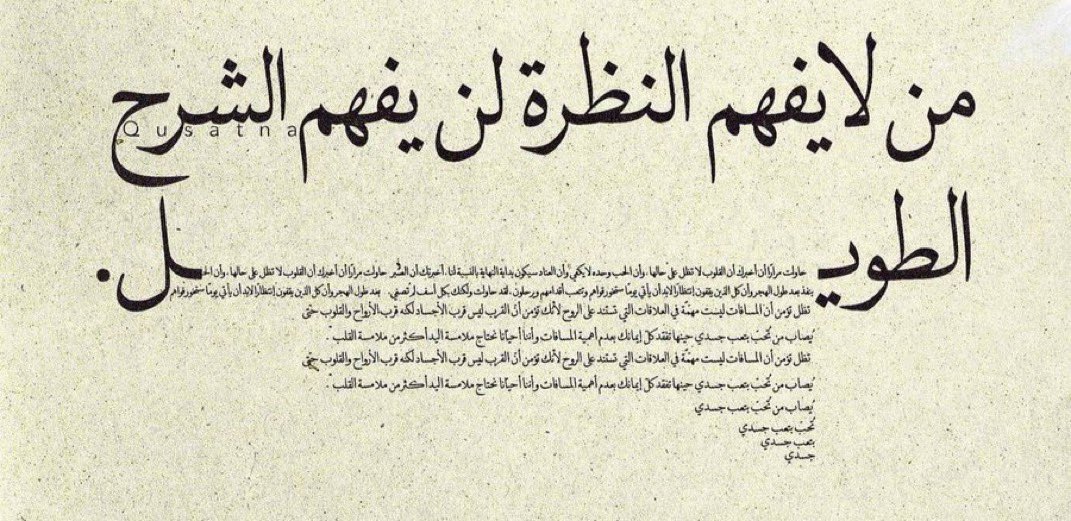 من لا يفهم النظرة لن يفهم الشرح
Qusatna
الطويل.
حاولت مرارًا أن أخبرك أن القلوب لا تظل على حالها، وأن الحب وحده لا يكفي وأن العناد سيكون بداية النهاية بالنسبة لنا، أخبرتك أن الصبر حاولت مرارًا أن أخبرك أن القلوب لا تظل على حالها، وأن الحب
ينفذ بعد طول الهجر وأن كل الذين يقفون إنتظارًا لابد أن يأتي يومًا ستخور قواهم وتتعب أقدامهم ويرحلون، لقد حاولت ولكنك بكل أسف لم تصغي. بعد طول الهجر وأن كل الذين يقفون إنتظارًا لابد أن يأتي يومًا ستخور قواهم
تظل تؤمن أن المسافات ليست مهمّة في العلاقات التي تستند على الروح لأنك تؤمن أن القرب ليس قرب الأجساد لكنه قرب الأرواح والقلوب حتى
يُصاب من تُحبّ بتعب جسدي حينها تفقد كلّ إيمانك بعدم أهمية المسافات وأننا أحيانًا نحتاج ملامسة اليد أكثر من ملامسة القلب.
تظل تؤمن أن المسافات ليست مهمّة في العلاقات التي تستند على الروح لأنك تؤمن أن القرب ليس قرب الأجساد لكنه قرب الأرواح والقلوب حتى
يُصاب من تُحبّ بتعب جسدي حينها تفقد كلّ إيمانك بعدم أهمية المسافات وأننا أحيانًا نحتاج ملامسة اليد أكثر من ملامسة القلب.
يُصاب من تُحبّ بتعب جسدي
تُحبّ بتعب جسدي
بتعب جسدي
جسدي